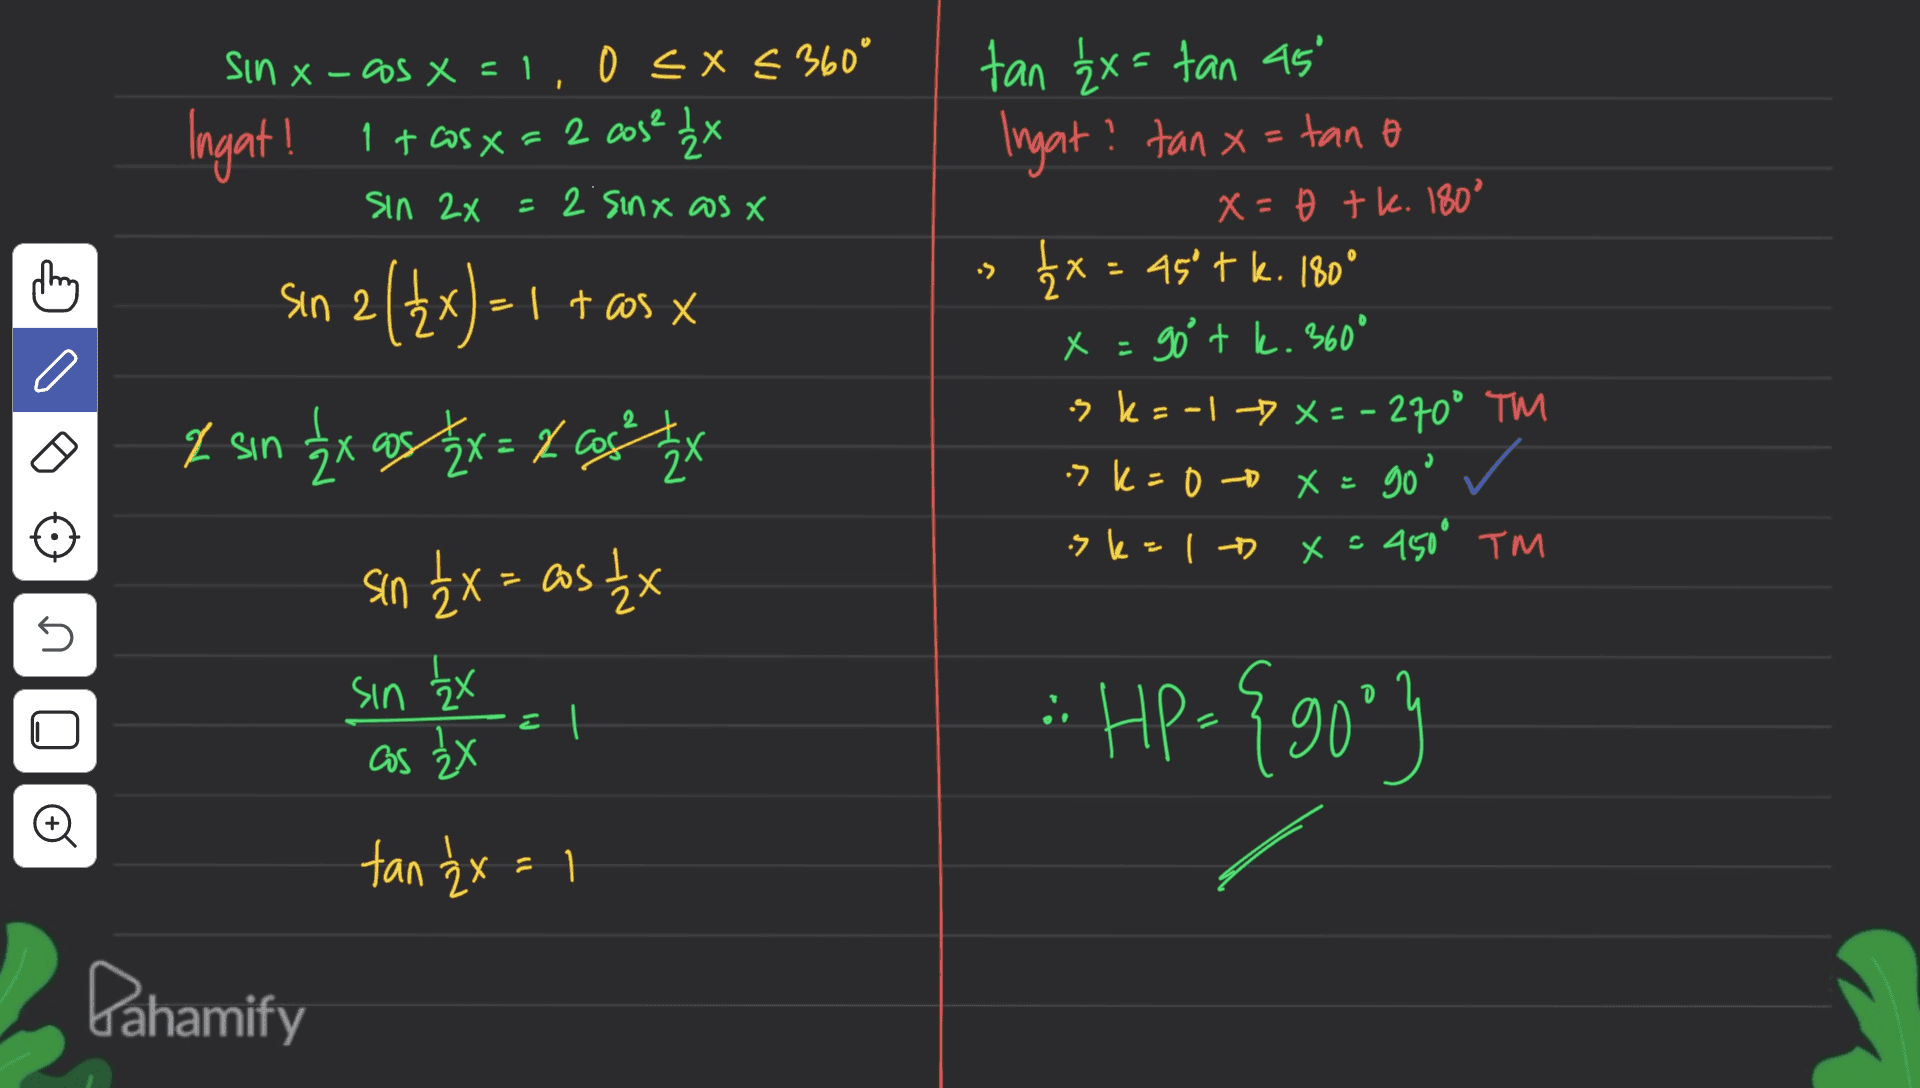 sin x - cos x = 1, 0 ≤ x ≤ 360°
Ingat! 1 + cos x = 2 cos² ½x
sin 2x = 2 sin x cos x
sin 2(½x) = 1 + cos x
2 sin ½x cos ½x = 2 cos² ½x
sin ½x = cos ½x
sin ½x / cos ½x = 1
tan ½x = 1
tan ½x = tan 45°
Ingat! tan x = tan θ
x = θ + k. 180°
∴ ½x = 45° + k. 180°
x = 90° + k. 360°
∴ k = -1 → x = -270° TM
∴ k = 0 → x = 90° ✓
∴ k = 1 → x = 450° TM
∴ HP = {90°}
Pahamify